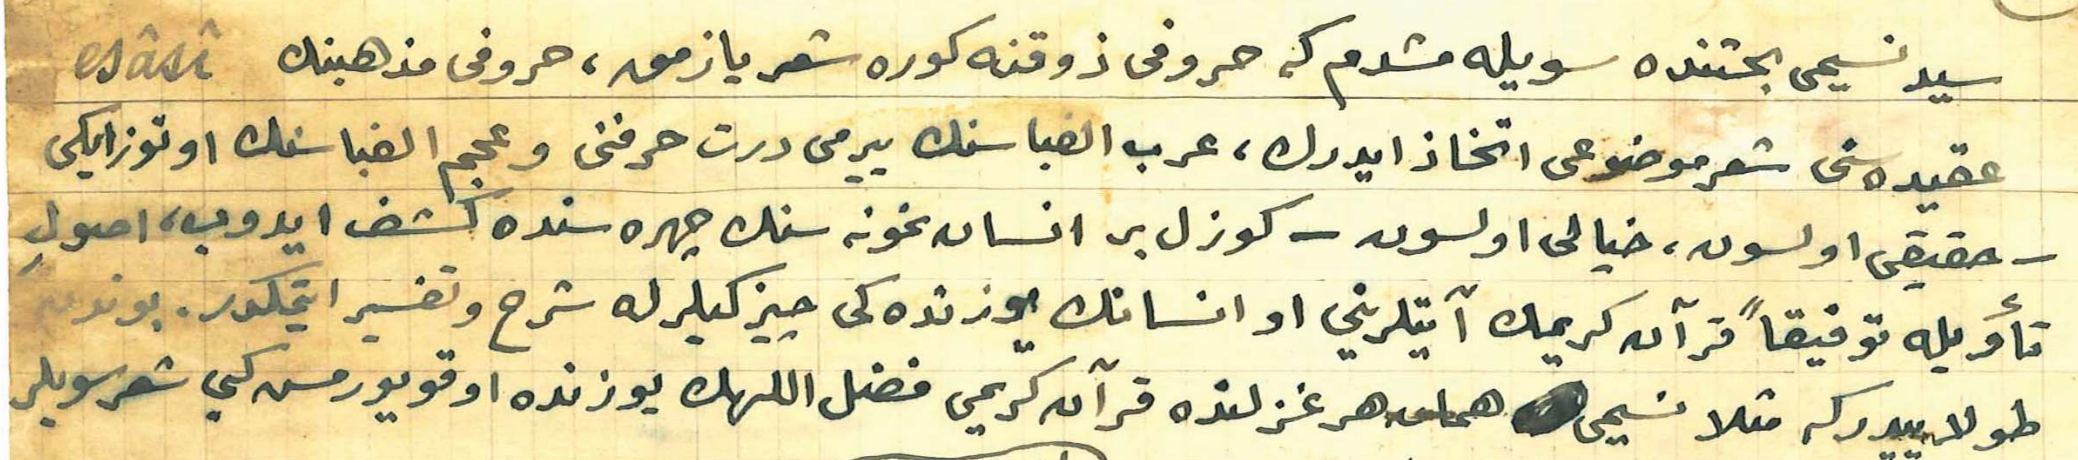 سيد نسيمى بحثنده سويله مشدم كه حروفى ذوقنه كوره شعر يازمق، حروفى مذهبنك esâsî
عقيده سنى شعر موضوعى اتخاذ ايدرك، عرب الفباسنك ييرمى درت حرفنى و عجم الفباسنك اوتوز ايكى
ـ حقيقى اولسون، خيالى اولسون ـ كوزل بر انسان نمونه سنك چهره سنده كشف ايدوب، اصولِ
تأويله توفيقاً قرآن كريمك آيتلرينى او انسانك يوزنده كى چيزكيلرله شرح و تفسير ايتمكدر. بوندن
طولاييدركه مثلا نسيمى همان هر غزلنده قرآن كريمى فضل اللهك يوزنده اوقويورمش كبى شعر سويلر